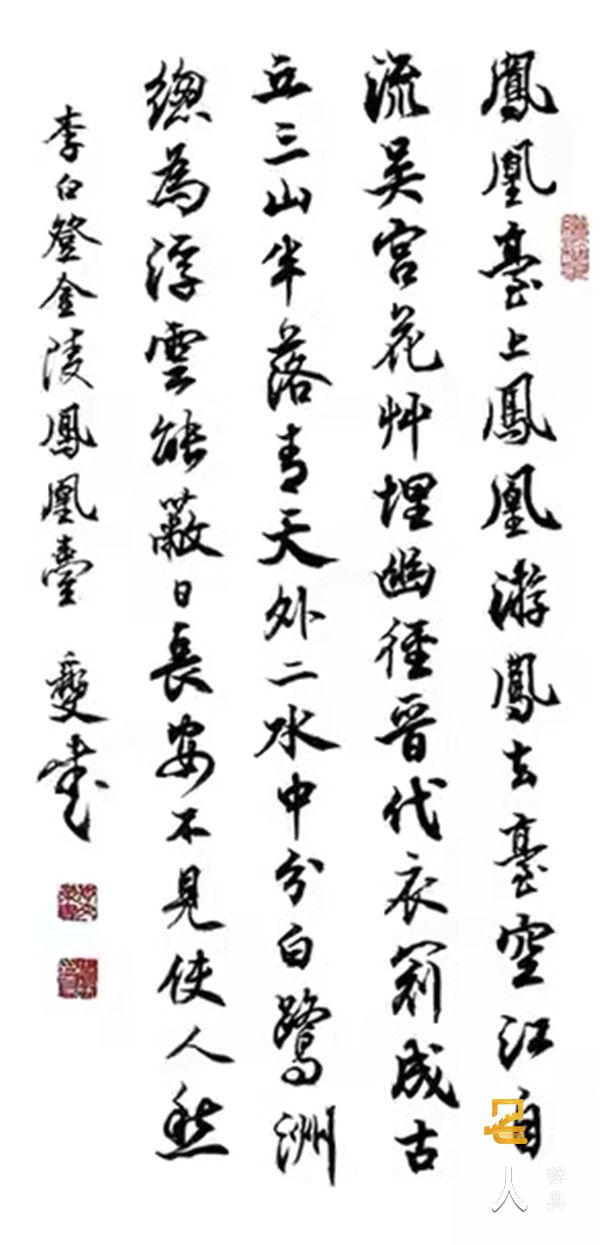 鳳凰臺上鳳凰游鳳去臺空江自
流吴宫花艸埋幽徑晉代衣冠成古
丘三山半落青天外二水中分白鷺洲
總為浮雲能蔽日長安不見使人愁
李白登金陵鳳凰臺
名人
辞典